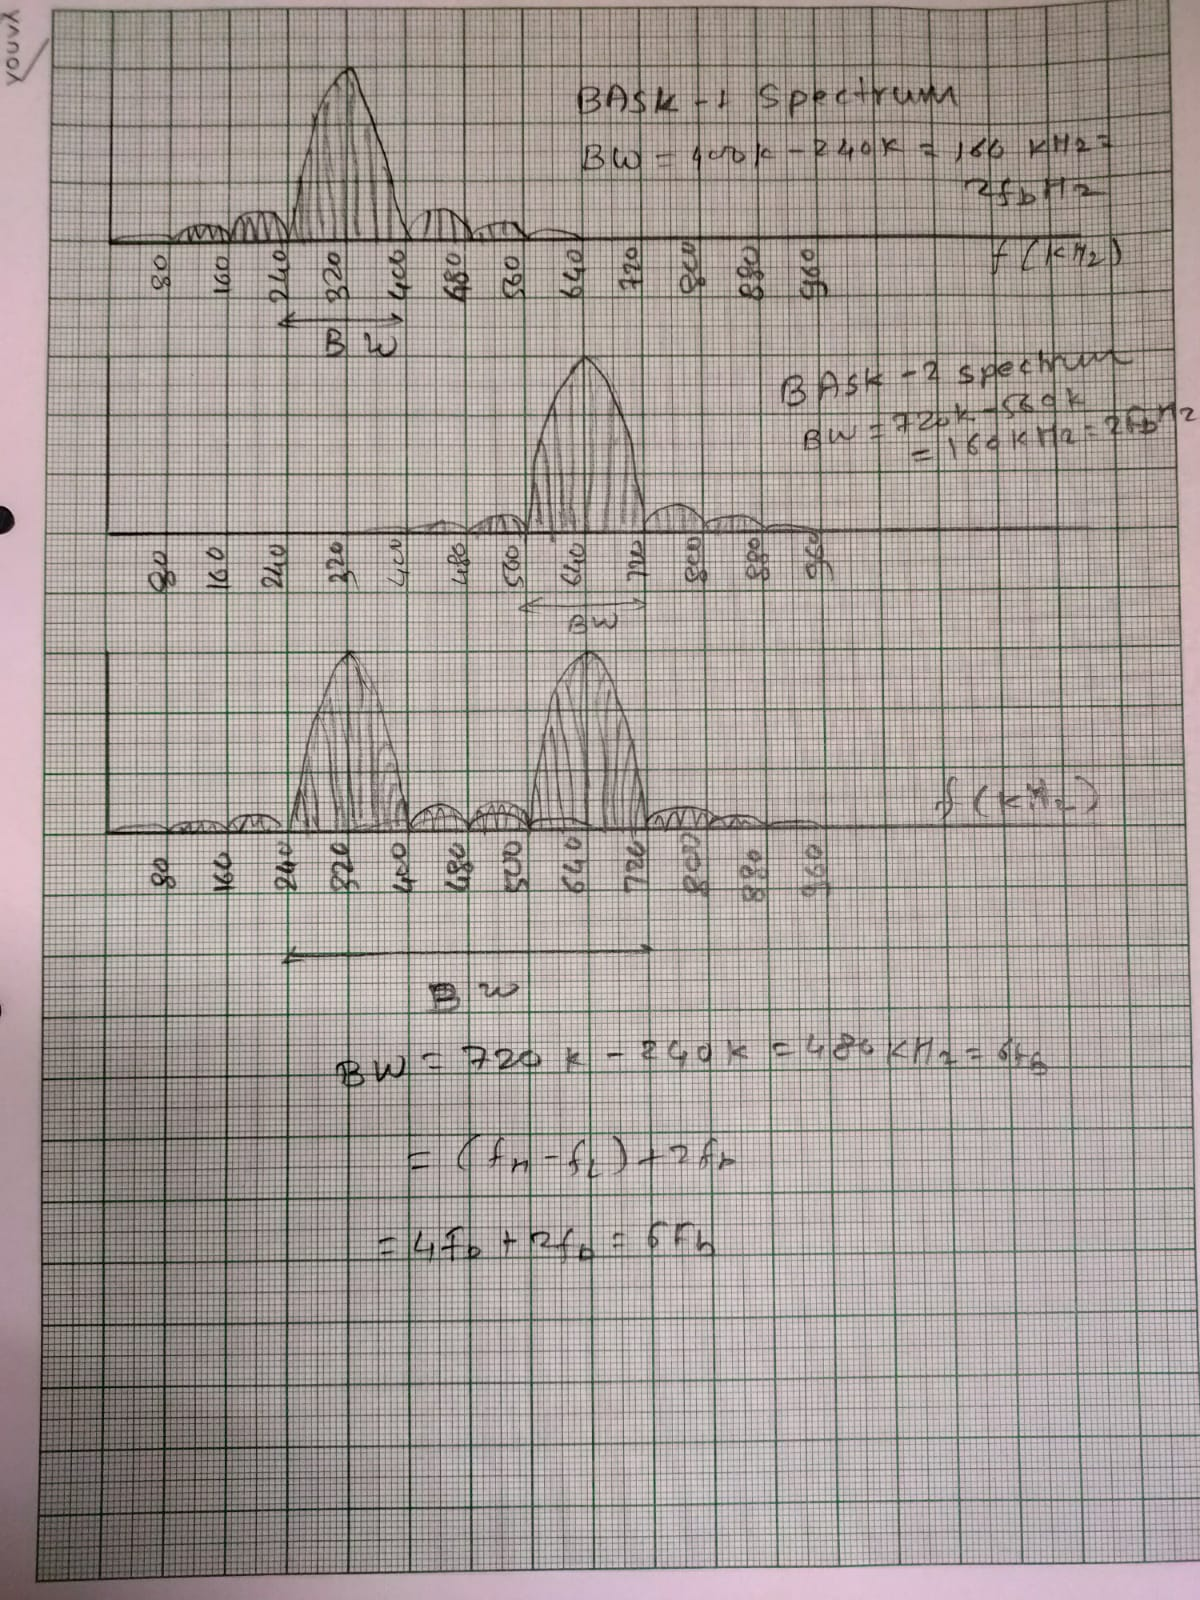 YOUVA
BASK-1 spectrum
BW = 400k - 240k = 160 KHz =
2fb Hz
f (KHz)
80 160 240 320 400 480 560 640 720 800 880 960
BW
BASK-2 spectrum
BW = 720k - 560k
= 160KHz = 2fb Hz
80 160 240 320 400 480 560 640 720 800 880 960
BW
f (KHz)
80 160 240 320 400 480 500 640 720 800 880 960
BW
BW = 720k - 240k = 480KHz = 6fb
= (fH - fL) + 2fb
= 4fb + 2fb = 6fb